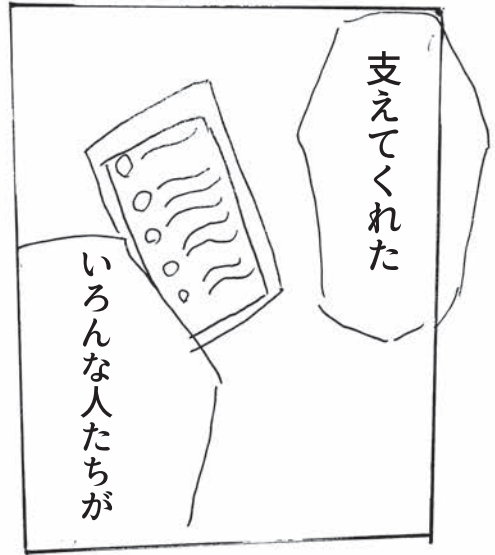 支えてくれた
いろんな人たちが